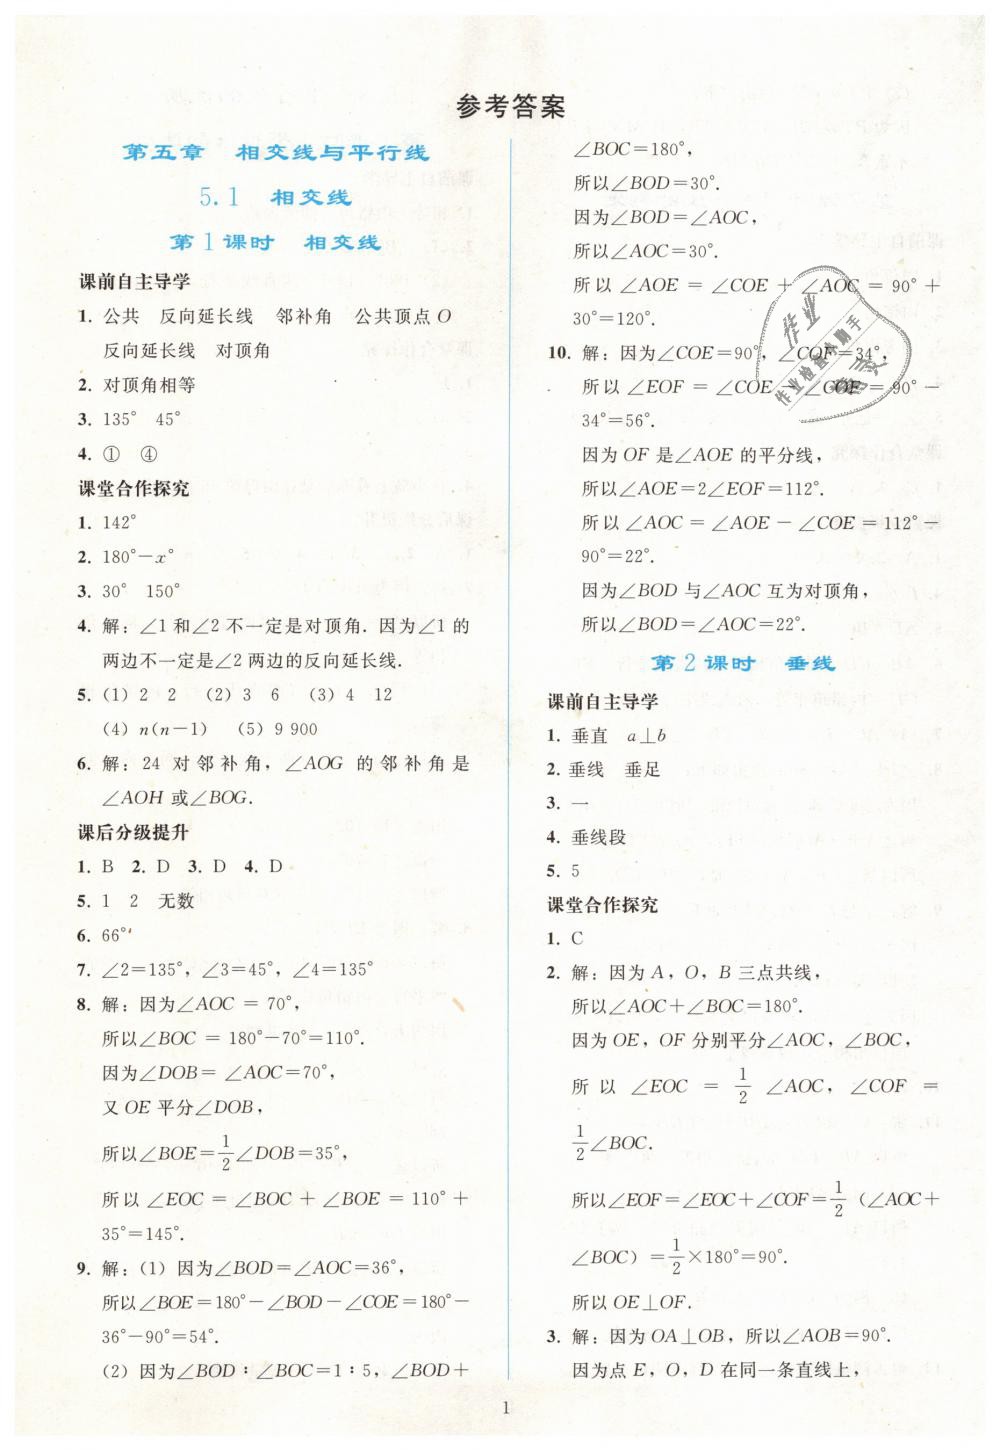 参考答案
第五章 相交线与平行线
5.1 相交线
第1课时 相交线
课前自主导学
1. 公共 反向延长线 邻补角 公共顶点O
反向延长线 对顶角
2. 对顶角相等
3. 135° 45°
4. ① ④
课堂合作探究
1. 142°
2. 180°-x°
3. 30° 150°
4. 解:∠1和∠2不一定是对顶角. 因为∠1的
两边不一定是∠2两边的反向延长线.
5. (1) 2 2 (2) 3 6 (3) 4 12
(4) n(n-1) (5) 9 900
6. 解:24对邻补角,∠AOG的邻补角是
∠AOH或∠BOG.
课后分级提升
1. B 2. D 3. D 4. D
5. 1 2 无数
6. 66°
7. ∠2=135°,∠3=45°,∠4=135°
8. 解:因为∠AOC=70°,
所以∠BOC=180°-70°=110°.
因为∠DOB=∠AOC=70°,
又OE平分∠DOB,
所以∠BOE=1/2∠DOB=35°,
所以∠EOC=∠BOC+∠BOE=110°+
35°=145°.
9. 解:(1) 因为∠BOD=∠AOC=36°,
所以∠BOE=180°-∠BOD-∠COE=180°-
36°-90°=54°.
(2) 因为∠BOD∶∠BOC=1∶5,∠BOD+
∠BOC=180°,
所以∠BOD=30°.
因为∠BOD=∠AOC,
所以∠AOC=30°.
所以∠AOE=∠COE+∠AOC=90°+
30°=120°.
10. 解:因为∠COE=90°,∠COF=34°,
所以∠EOF=∠COE-∠COF=90°-
34°=56°.
因为OF是∠AOE的平分线,
所以∠AOE=2∠EOF=112°.
所以∠AOC=∠AOE-∠COE=112°-
90°=22°.
因为∠BOD与∠AOC互为对顶角,
所以∠BOD=∠AOC=22°.
第2课时 垂线
课前自主导学
1. 垂直 a⊥b
2. 垂线 垂足
3. 一
4. 垂线段
5. 5
课堂合作探究
1. C
2. 解:因为A,O,B三点共线,
所以∠AOC+∠BOC=180°.
因为OE,OF分别平分∠AOC,∠BOC,
所以∠EOC=1/2∠AOC,∠COF=
1/2∠BOC.
所以∠EOF=∠EOC+∠COF=1/2(∠AOC+
∠BOC)=1/2×180°=90°.
所以OE⊥OF.
3. 解:因为OA⊥OB,所以∠AOB=90°.
因为点E,O,D在同一条直线上,
1